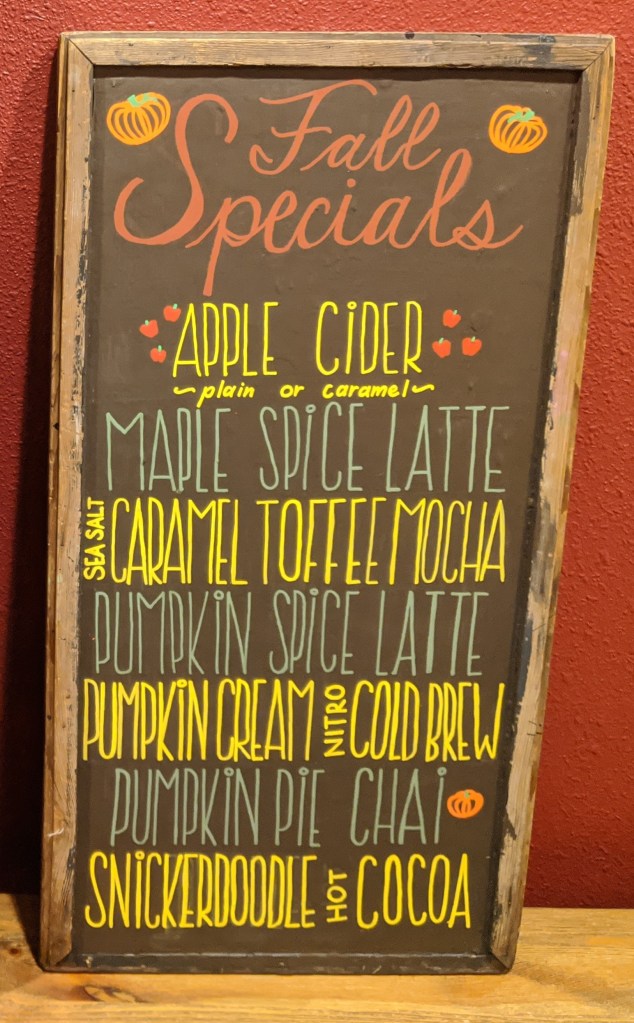 Fall
Specials
APPLE CiDER
~plain or caramel~
MAPLE SPiCE LATTE
SEA SALT CARAMEL TOFFEE MOCHA
PUMPKiN SPiCE LATTE
PUMPKiN CREAM NITRO COLD BREW
PUMPKiN PiE CHAi
SNiCKERDOODLE HOT COCOA